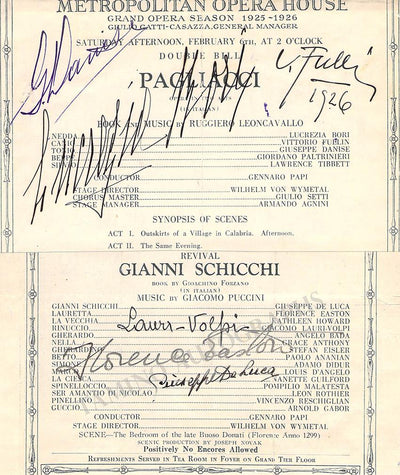 METROPOLITAN OPERA HOUSE
GRAND OPERA SEASON 1925-1926
GIULIO GATTI-CASAZZA, GENERAL MANAGER
SATURDAY AFTERNOON, FEBRUARY 6TH, AT 2 O'CLOCK
DOUBLE BILL
PAGLIACCI
BOOK AND MUSIC BY RUGGIERO LEONCAVALLO
NEDDA LUCREZIA BORI
CANIO VITTORIO FULLIN
TONIO GIUSEPPE DANISE
BEPPE GIORDANO PALTRINIERI
SILVIO LAWRENCE TIBBETT
CONDUCTOR GENNARO PAPI
STAGE DIRECTOR WILHELM VON WYMETAL
CHORUS MASTER GIULIO SETTI
STAGE MANAGER ARMANDO AGNINI
SYNOPSIS OF SCENES
ACT I. Outskirts of a Village in Calabria. Afternoon.
ACT II. The Same Evening.
G. Danise
V. Fullin
1926
REVIVAL
GIANNI SCHICCHI
BOOK BY GIOACHINO FORZANO
(IN ITALIAN)
MUSIC BY GIACOMO PUCCINI
GIANNI SCHICCHI GIUSEPPE DE LUCA
LAURETTA FLORENCE EASTON
LA VECCHIA KATHLEEN HOWARD
RINUCCIO GIACOMO LAURI-VOLPI
GHERARDO ANGELO BADA
NELLA GRACE ANTHONY
GHERARDINO STEFAN EISLER
BETTO PAOLO ANANIAN
SIMONE ADAMO DIDUR
MARCO LOUIS D'ANGELO
LA CIESCA NANETTE GUILFORD
SPINELLOCCIO POMPILIO MALATESTA
SER AMANTIO DI NICOLAO LEON ROTHIER
PINELLINO VINCENZO RESCHIGLIAN
GUCCIO ARNOLD GABOR
Lauri-Volpi
Florence Easton
Giuseppe De Luca
CONDUCTOR GENNARO PAPI
STAGE DIRECTOR WILHELM VON WYMETAL
SCENE—The Bedroom of the late Buoso Donati (Florence Anno 1299)
SCENIC PRODUCTION BY JOSEPH NOVAK
Positively No Encores Allowed
REFRESHMENTS SERVED IN TEA ROOM IN FOYER ON GRAND TIER FLOOR